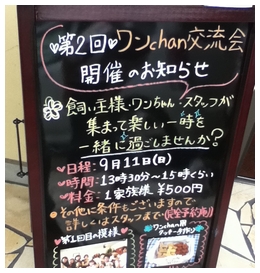 ♥第2回♥ワンchan交流会
開催のお知らせ
飼い主様・ワンちゃん・スタッフが
集まって楽しい一時を
一緒に過ごしませんか?
♥日程:9月11日(日)
♥時間:13時30分~15時ぐらい
♥料金:1家族様 ¥500円
その他に条件もございますので
詳しくはスタッフまで(完全予約制)
♥第1回目の模様♥
ワンchan用
クッキー手作り